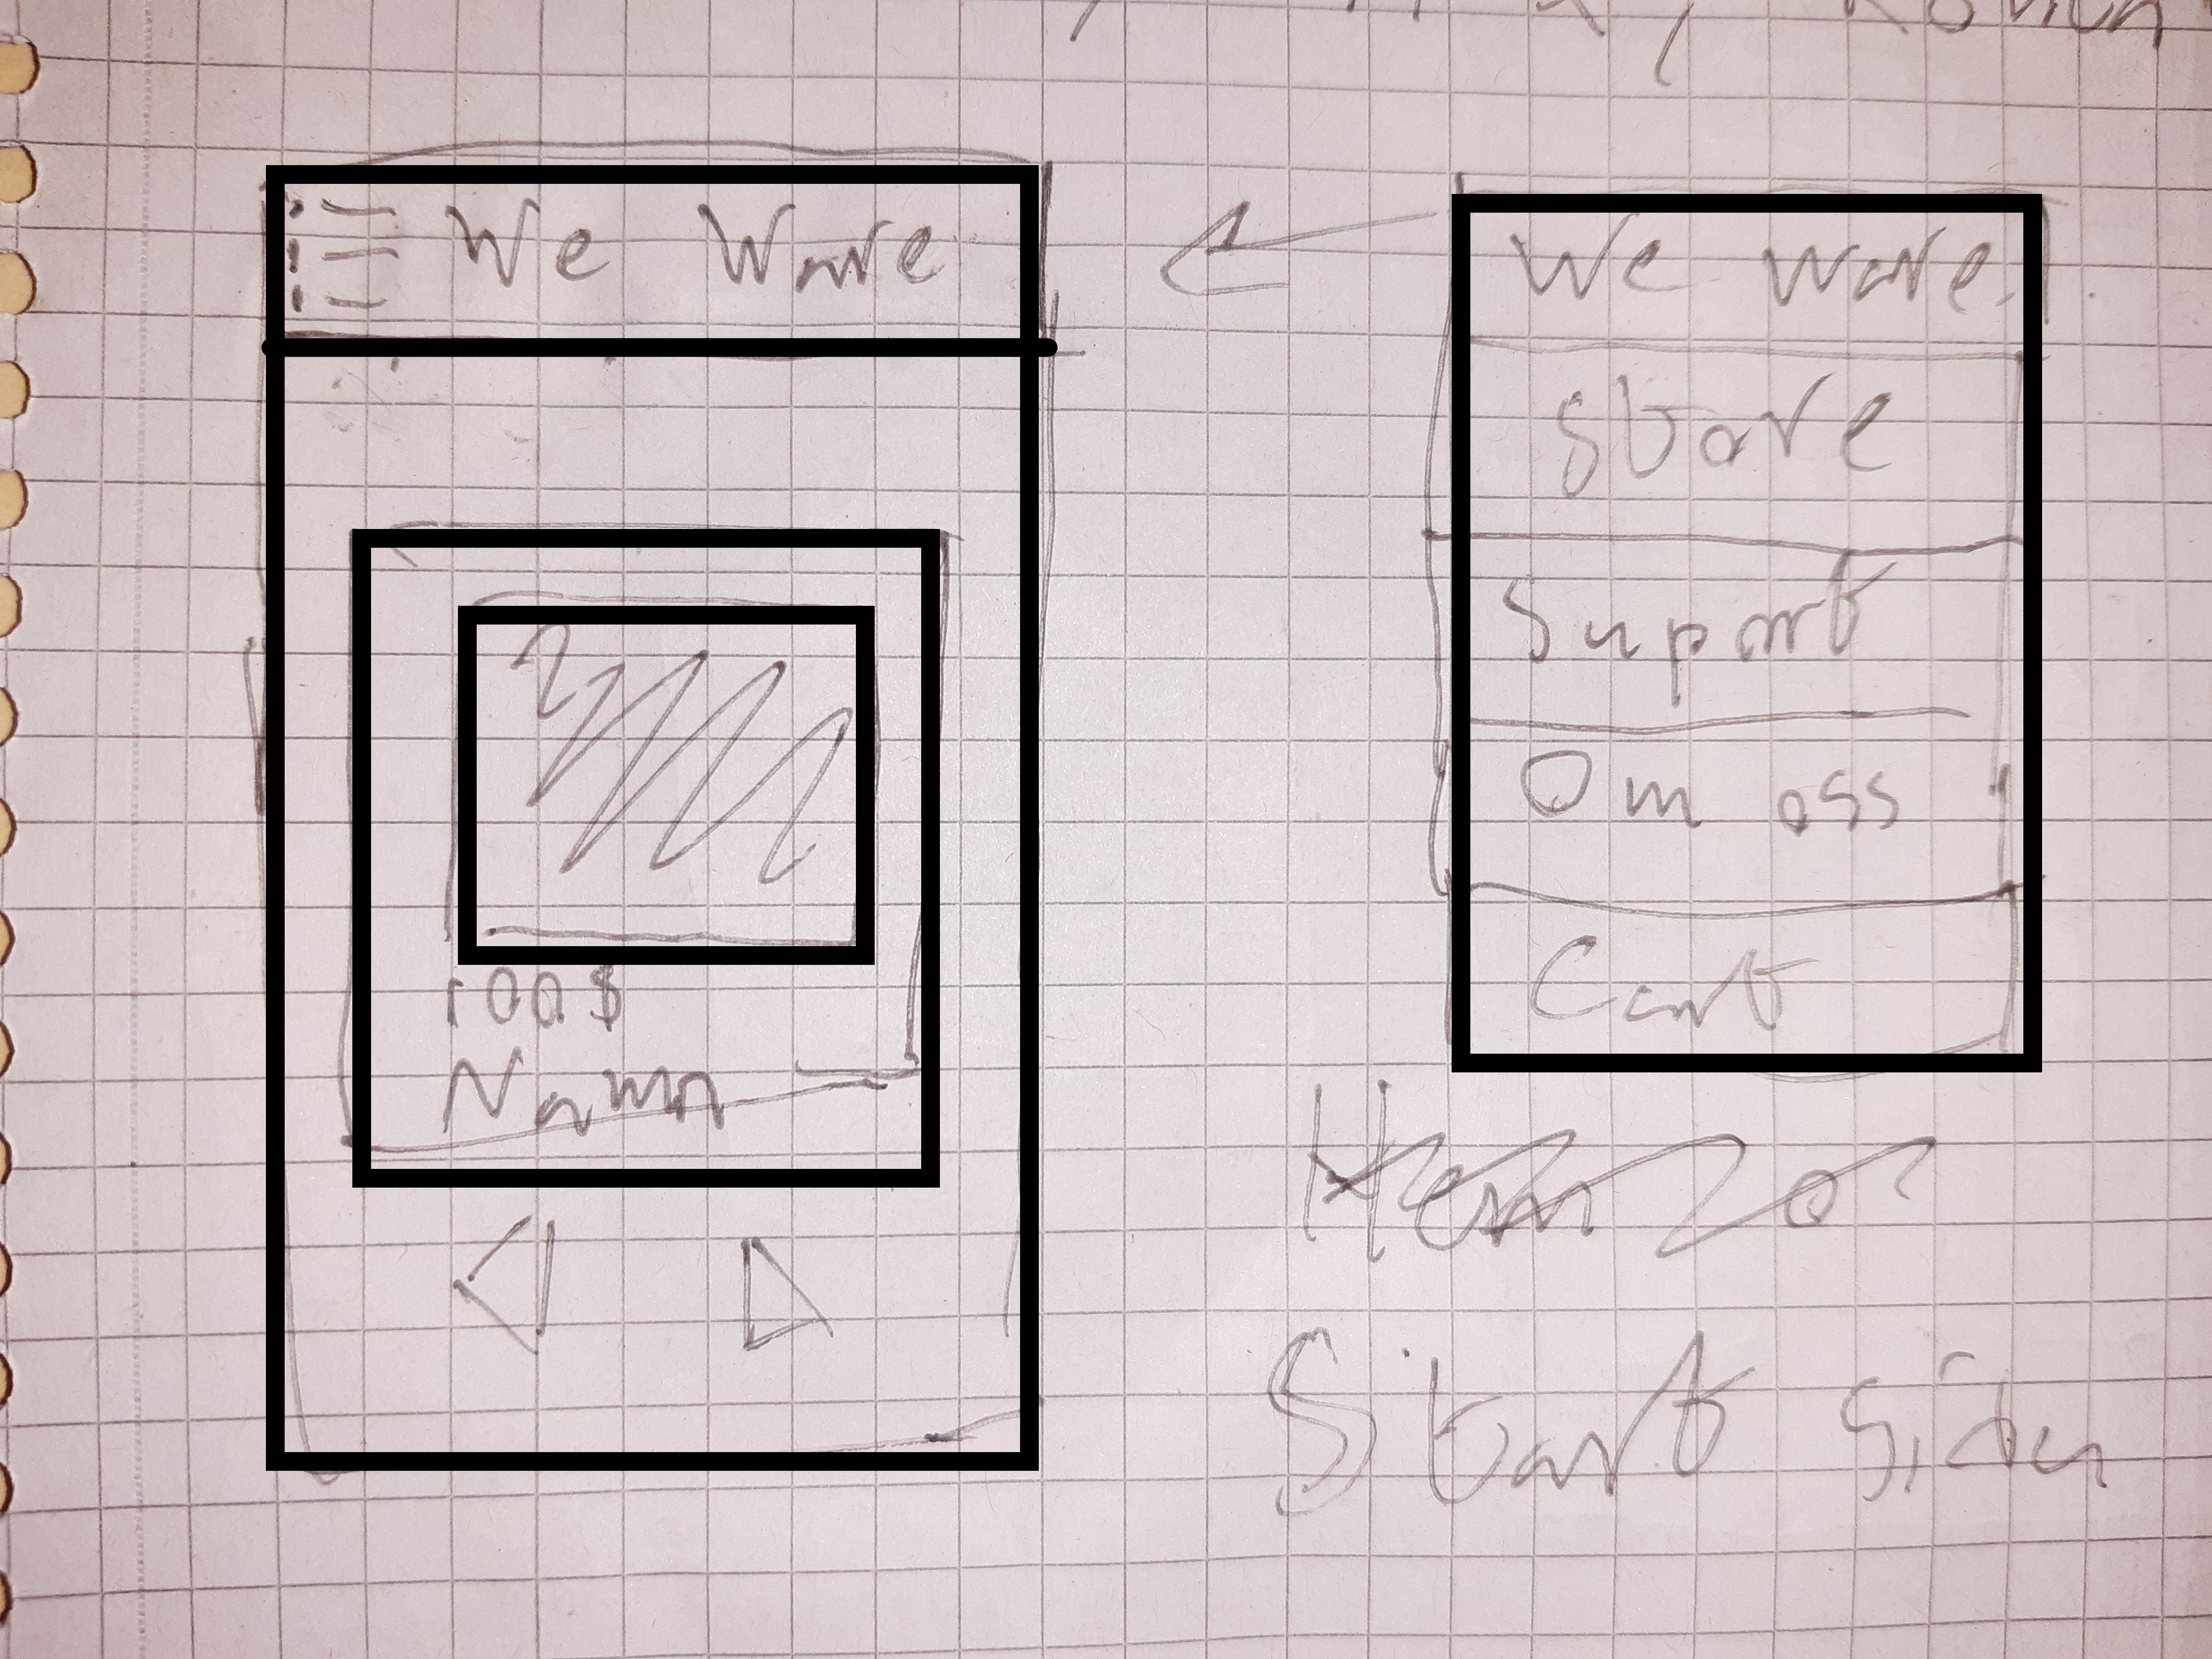 We Ware
100$
Namn
We ware
Store
Suport
Om oss
Cart
Start sidan